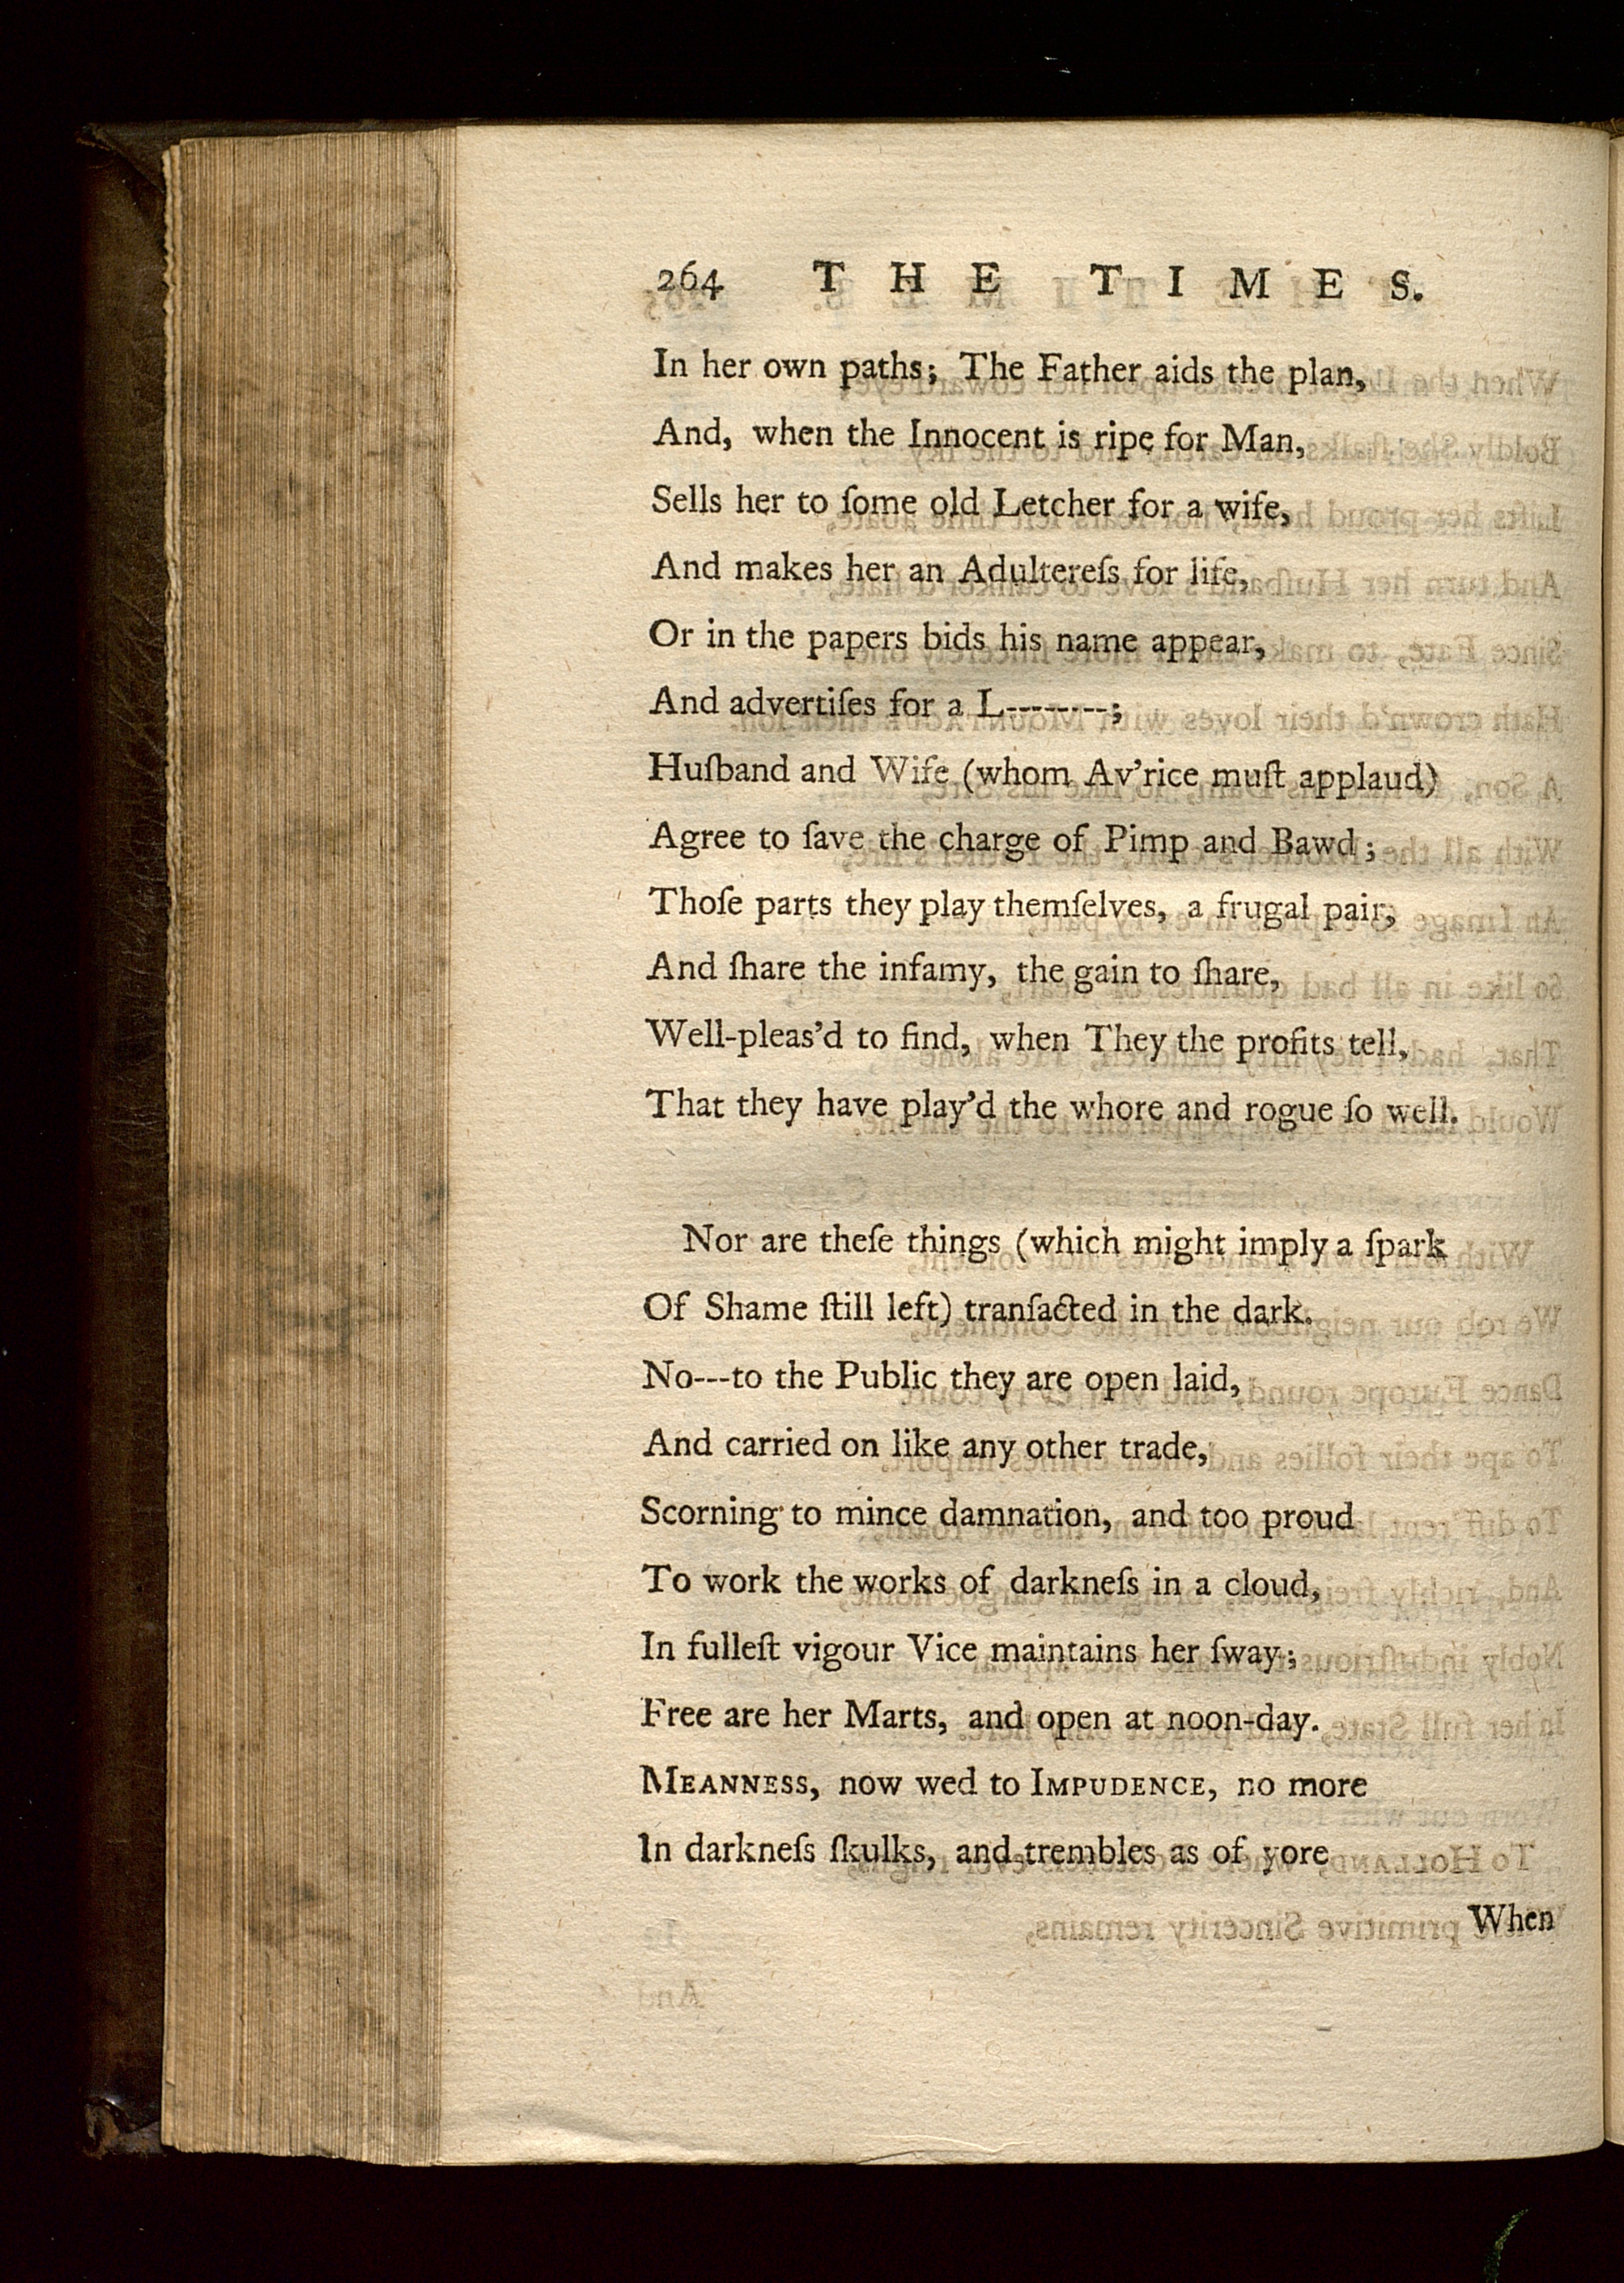 264 THE TIMES.
In her own paths; The Father aids the plan,
And, when the Innocent is ripe for Man,
Sells her to ſome old Letcher for a wife,
And makes her an Adultereſs for life,
Or in the papers bids his name appear,
And advertiſes for a L--------;
Huſband and Wife (whom Av'rice muſt applaud)
Agree to ſave the charge of Pimp and Bawd;
Thoſe parts they play themſelves, a frugal pair,
And ſhare the infamy, the gain to ſhare,
Well-pleas'd to find, when They the profits tell,
That they have play'd the whore and rogue ſo well.
Nor are theſe things (which might imply a ſpark
Of Shame ſtill left) tranſacted in the dark.
No---to the Public they are open laid,
And carried on like any other trade,
Scorning to mince damnation, and too proud
To work the works of darkneſs in a cloud,
In fulleſt vigour Vice maintains her ſway;
Free are her Marts, and open at noon-day.
MEANNESS, now wed to IMPUDENCE, no more
In darkneſs ſkulks, and trembles as of yore
When